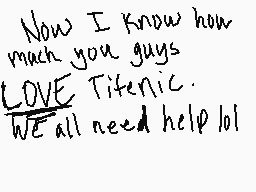 Now I know how
much you guys
LOVE Titenic.
WE all need help lol